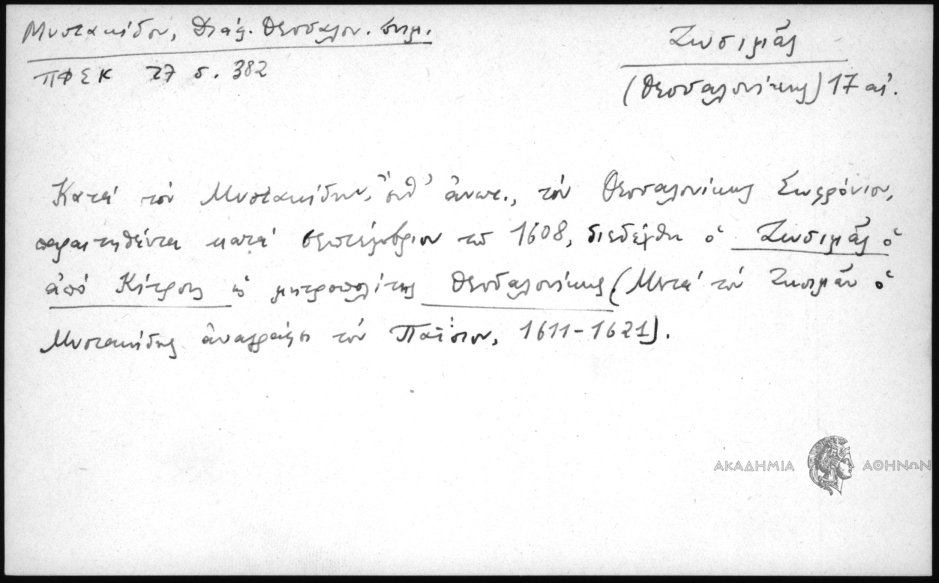 Μυστακίδου, Διάφ. Θεσσαλον. επιγ.
Ζωσιμᾶς
ΠΦΣΚ 27 σ. 382
(Θεσσαλονίκης) 17 αἰ.
Κατά τόν Μυστακίδην, ἔνθ' ἄνωτ., τόν Θεσσαλονίκης Σωφρόνιον,
παραιτηθέντα κατά Σεπτέμβριον τοῦ 1608, διεδέχθη ὁ Ζωσιμᾶς ὁ
ἀπό Κίτρους ὁ μητροπολίτης Θεσσαλονίκης (Μετά τόν Ζωσιμᾶν ὁ
Μυστακίδης ἀναγράφει τόν Παΐσιον, 1611-1621).
ΑΚΑΔΗΜΙΑ ΑΘΗΝΩΝ